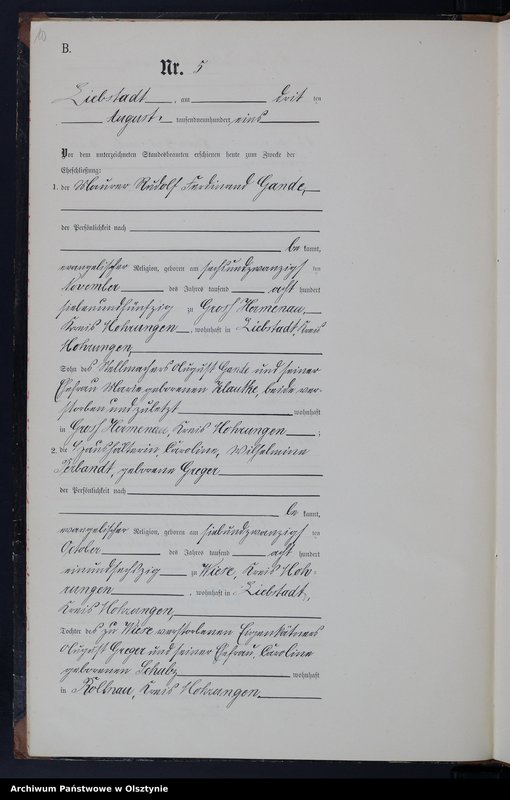 10
B.
Nr. 5
Liebstadt, am drit ten
August tausendneunhundert eins
Vor dem unterzeichneten Standesbeamten erschienen heute zum Zwecke der
Eheschließung:
1. der Maurer Rudolf Ferdinand Gande,
der Persönlichkeit nach
be kannt,
evangelischer Religion, geboren am sechsundzwanzigs ten
November des Jahres tausend acht hundert
siebenundfünfzig zu Gross Hermenau,
Kreis Mohrungen, wohnhaft in Liebstadt, Kreis
Mohrungen,
Sohn des Stellmachers August Gande und seiner
Ehefrau Marie geborenen Klautke, beide ver-
storben und zuletzt wohnhaft
in Gross Hermenau, Kreis Mohrungen;
2. die Haushälterin Caroline, Wilhelmine
geborene Greger
der Persönlichkeit nach
be kannt,
evangelischer Religion, geboren am siebundzwanzigs ten
October des Jahres tausend acht hundert
einundsechszig zu Wiese, Kreis Moh-
rungen, wohnhaft in Liebstadt,
Kreis Mohrungen,
Tochter des zu Wiese verstorbenen Eigenkätners
August Greger und seiner Ehefrau, Caroline
geborenen wohnhaft
in Kreis Mohrungen.
Archiwum Państwowe w Olsztynie